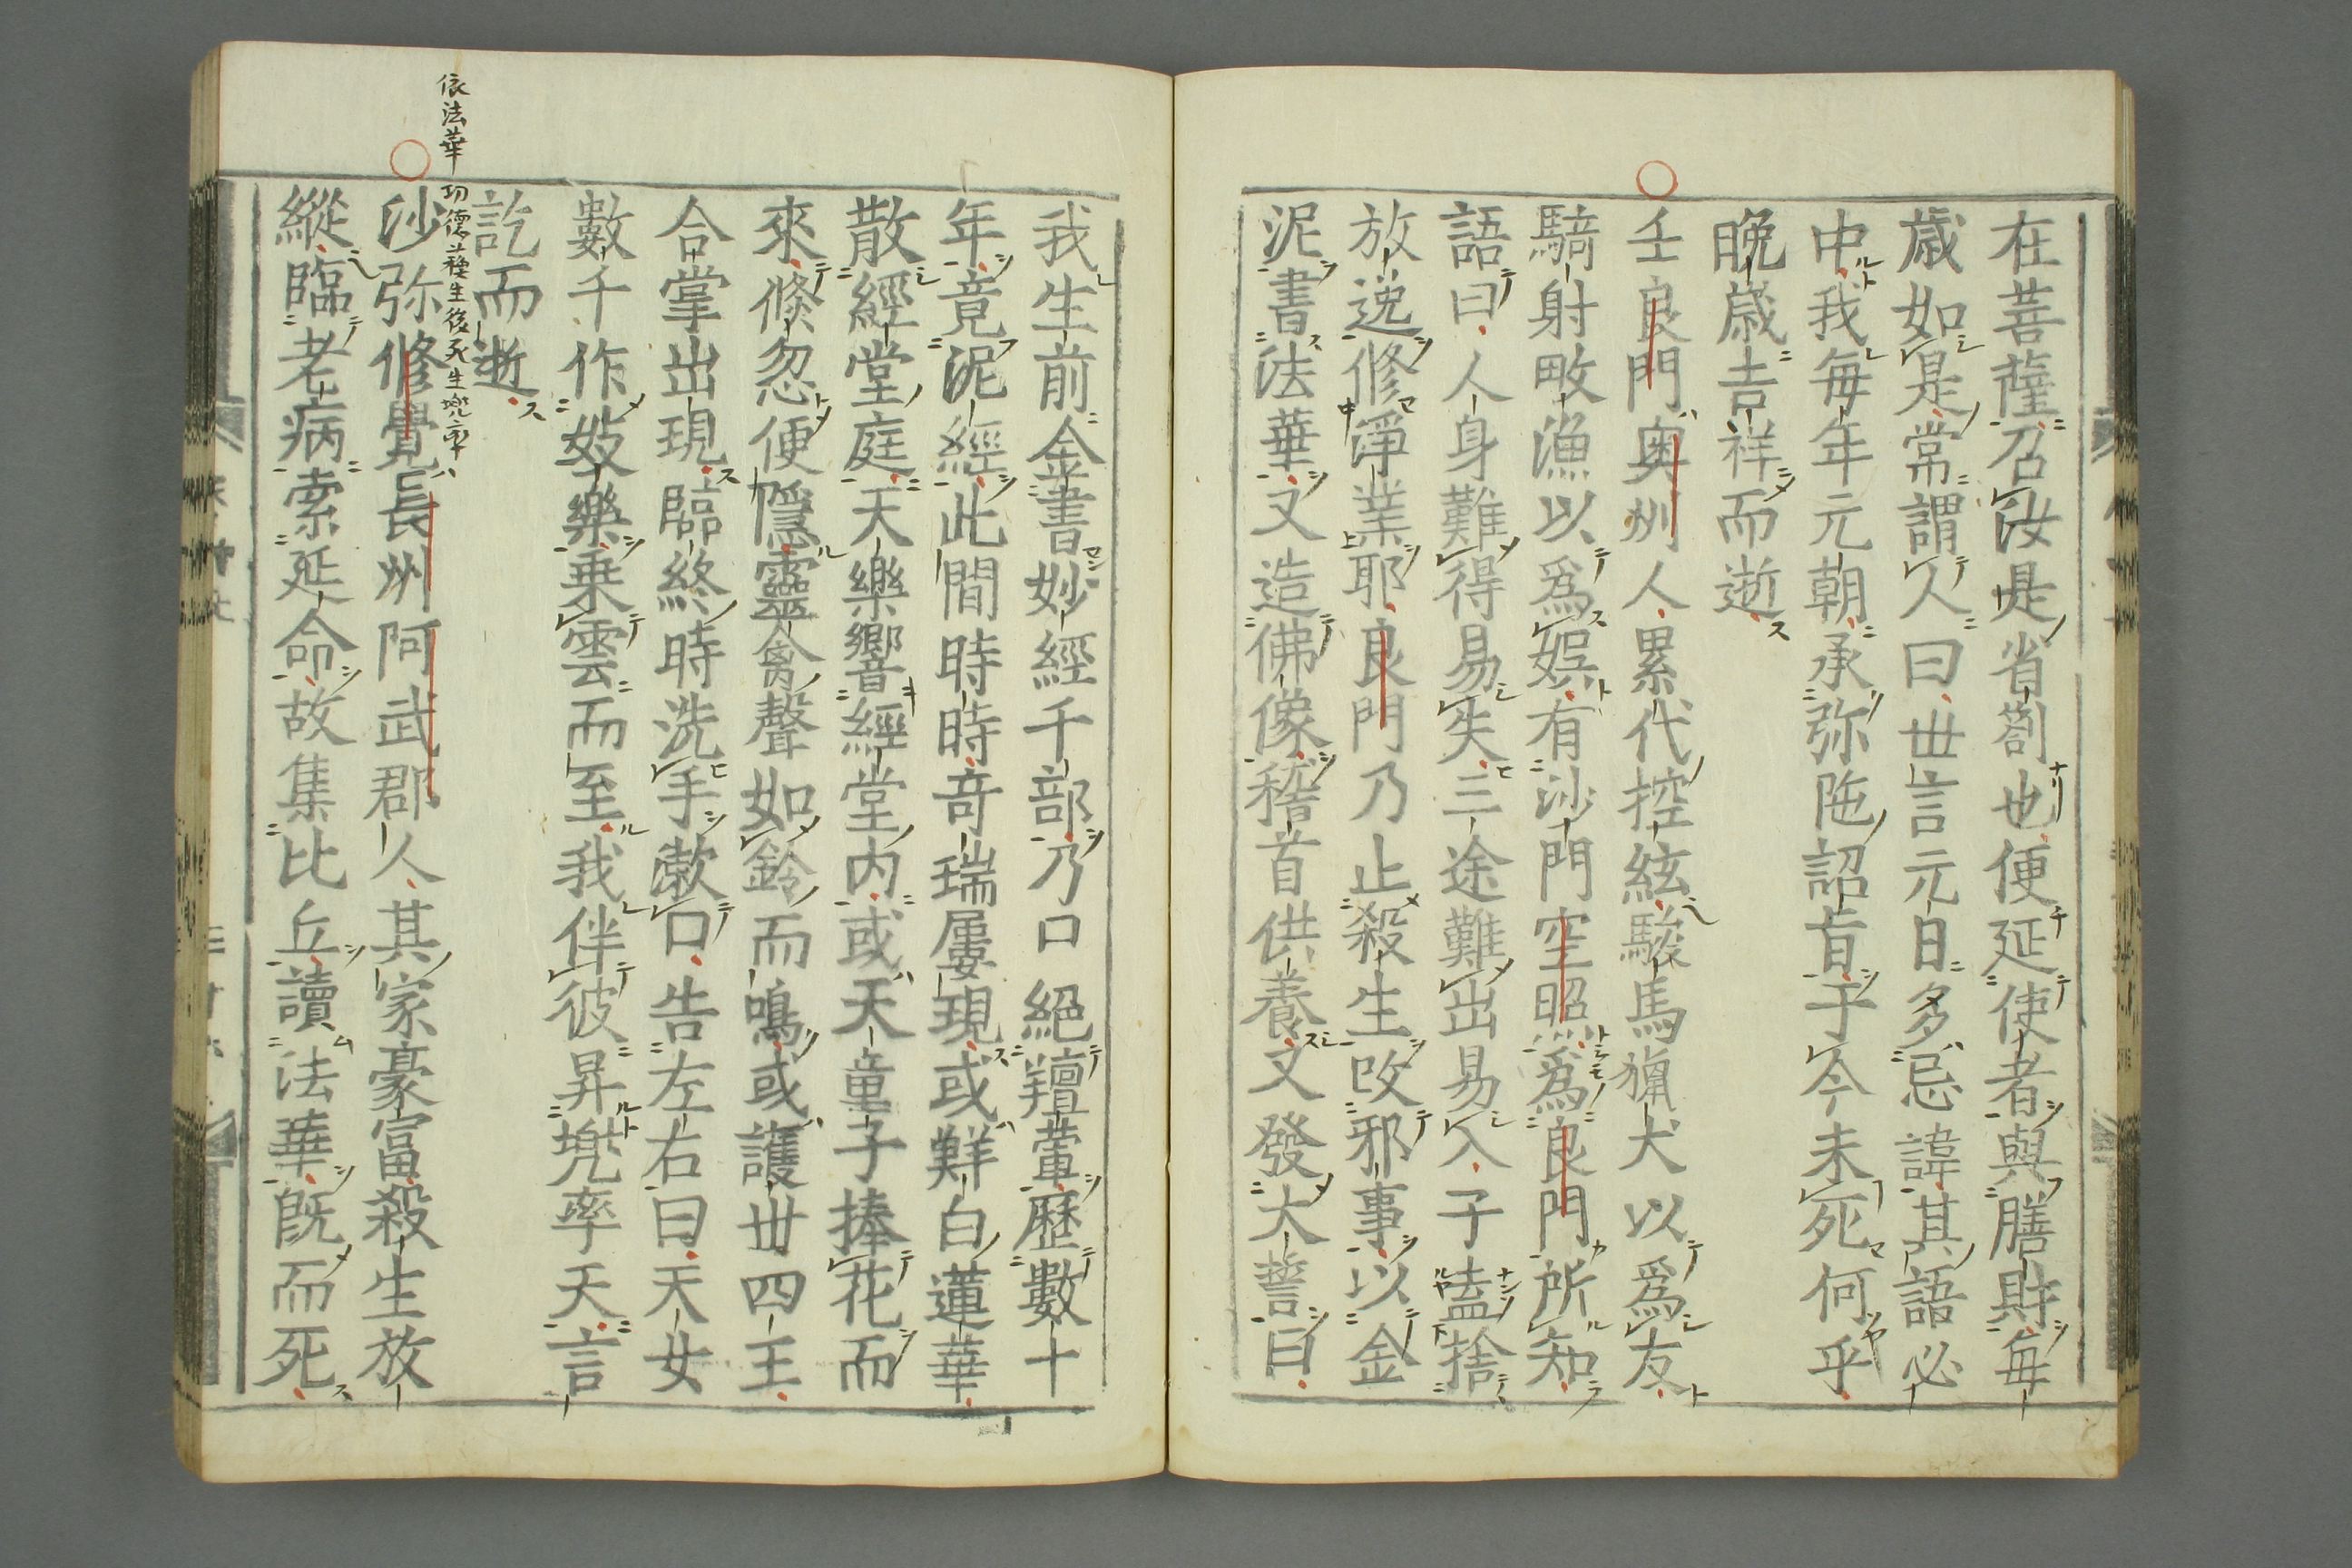 在菩薩召汝是省劄也便延使者與膳財毎
歳如是常謂人曰丗言元日多忌諱其語必
中我毎年元朝承弥陁詔旨于今未死何乎
晩歳吉祥而逝
壬良門奥州人累代控絃駿馬獵犬以爲友
騎射畋漁以爲娯有沙門空照爲良門所知
語曰人身難得易失三途難出易入子盍捨
放逸修淨業耶良門乃止殺生改邪事以金
泥書法華又造佛像稽首供養又發大誓曰
我生前金書妙經千部乃口絕羶葷歷數十
年竟泥經此間時時奇瑞屢現或鮮白蓮華
散經堂庭天樂響經堂内或天童子捧花而
來倏忽便隱靈禽聲如鈴而鳴或護丗四王
合掌出現臨終時洗手漱口告左右曰天女
數千作妓樂乗雲而至我伴彼昇兜率天言
訖而逝
依法華功德殺生後死生兜率
沙弥修覺長州阿武郡人其家豪富殺生放
縱臨老病索延命故集比丘讀法華既而死